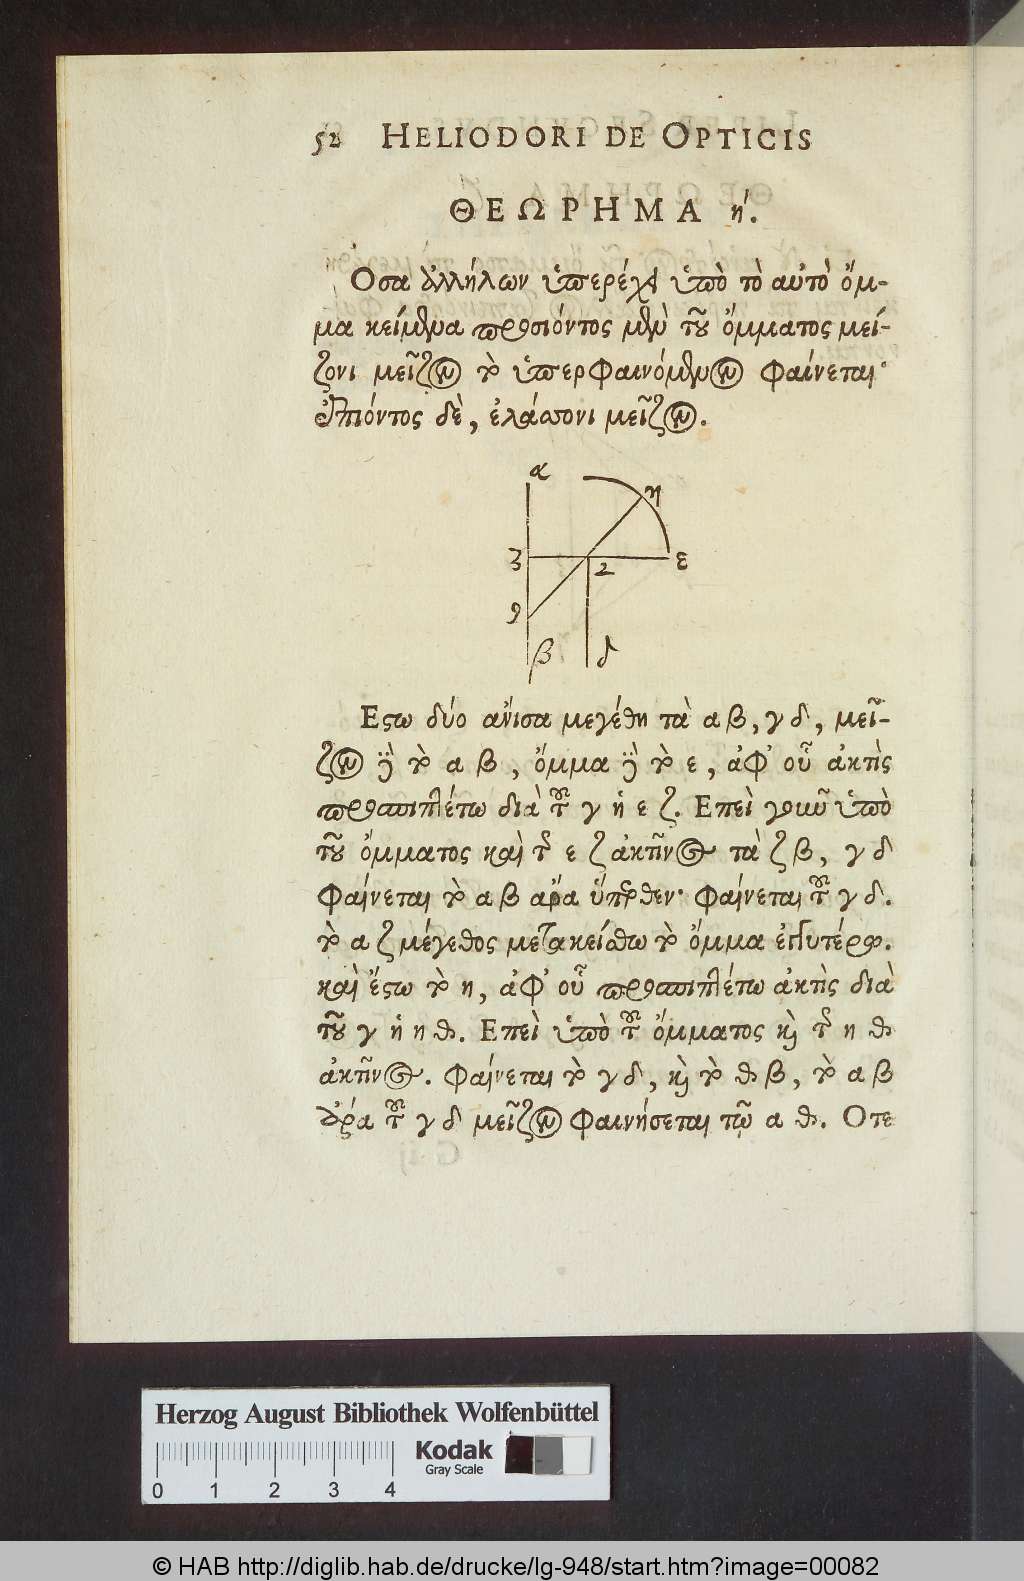 52 HELIODORI DE OPTICIS
ΘΕΩΡΗΜΑ ή.
Οσα ἀλλήλων ὑπερέχει ὑπὸ τὸ αὐτὸ ὄμ-
μα κείμενα προσιόντος μὲν τοῦ ὄμματος μεί-
ζονι μεῖζον τὸ ὑπερφαινόμενον φαίνεται·
ἀπιόντος δὲ, ἐλάσσονι μεῖζον.
α
η
ζ
ε
γ
θ
β
δ
Εστω δύο ἄνισα μεγέθη τὰ α β, γ δ, μεῖ-
ζον δὲ τὸ α β, ὄμμα δὲ τὸ ε, ἀφ᾽ οὗ ἀκτὶς
προσπιπτέτω διὰ τοῦ γ ἡ ε ζ. Επεὶ γοῦν ὑπὸ
τοῦ ὄμματος καὶ τῆς ε ζ ἀκτῖνος τὰ ζ β, γ δ
φαίνεται τὸ α β ἄρα ὕπερθεν· φαίνεται τοῦ γ δ.
τὸ α ζ μέγεθος μετακείσθω τὸ ὄμμα ἐγγυτέρω.
καὶ ἔστω τὸ η, ἀφ᾽ οὗ προσπιπτέτω ἀκτὶς διὰ
τοῦ γ ἡ η θ. Επεὶ ὑπὸ τοῦ ὄμματος καὶ τῆς η θ
ἀκτῖνος. φαίνεται τὸ γ δ, καὶ τὸ θ β, τὸ α β
ἄρα τοῦ γ δ μεῖζον φαινήσεται τῷ α θ. Οτε
Herzog August Bibliothek Wolfenbüttel
Kodak
Gray Scale
0 1 2 3 4
© HAB http://diglib.hab.de/drucke/lg-948/start.htm?image=00082